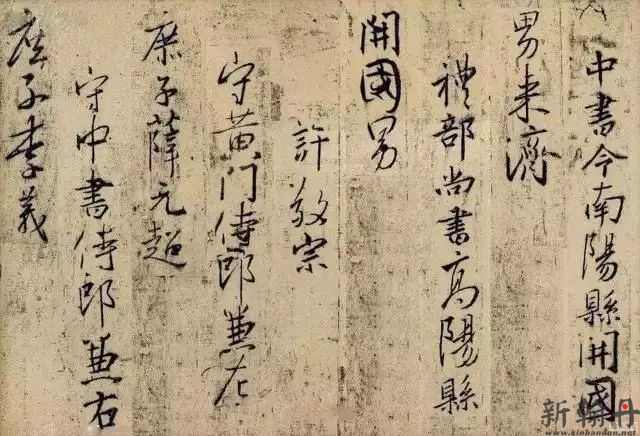 中書令南陽縣開國
男来濟
禮部尚書高陽縣
開國男
許敬宗
守黄门侍郎兼左
庶子薛元超
守中書侍郎兼右
庶子李義
新翰丹
www.xinhandan.net